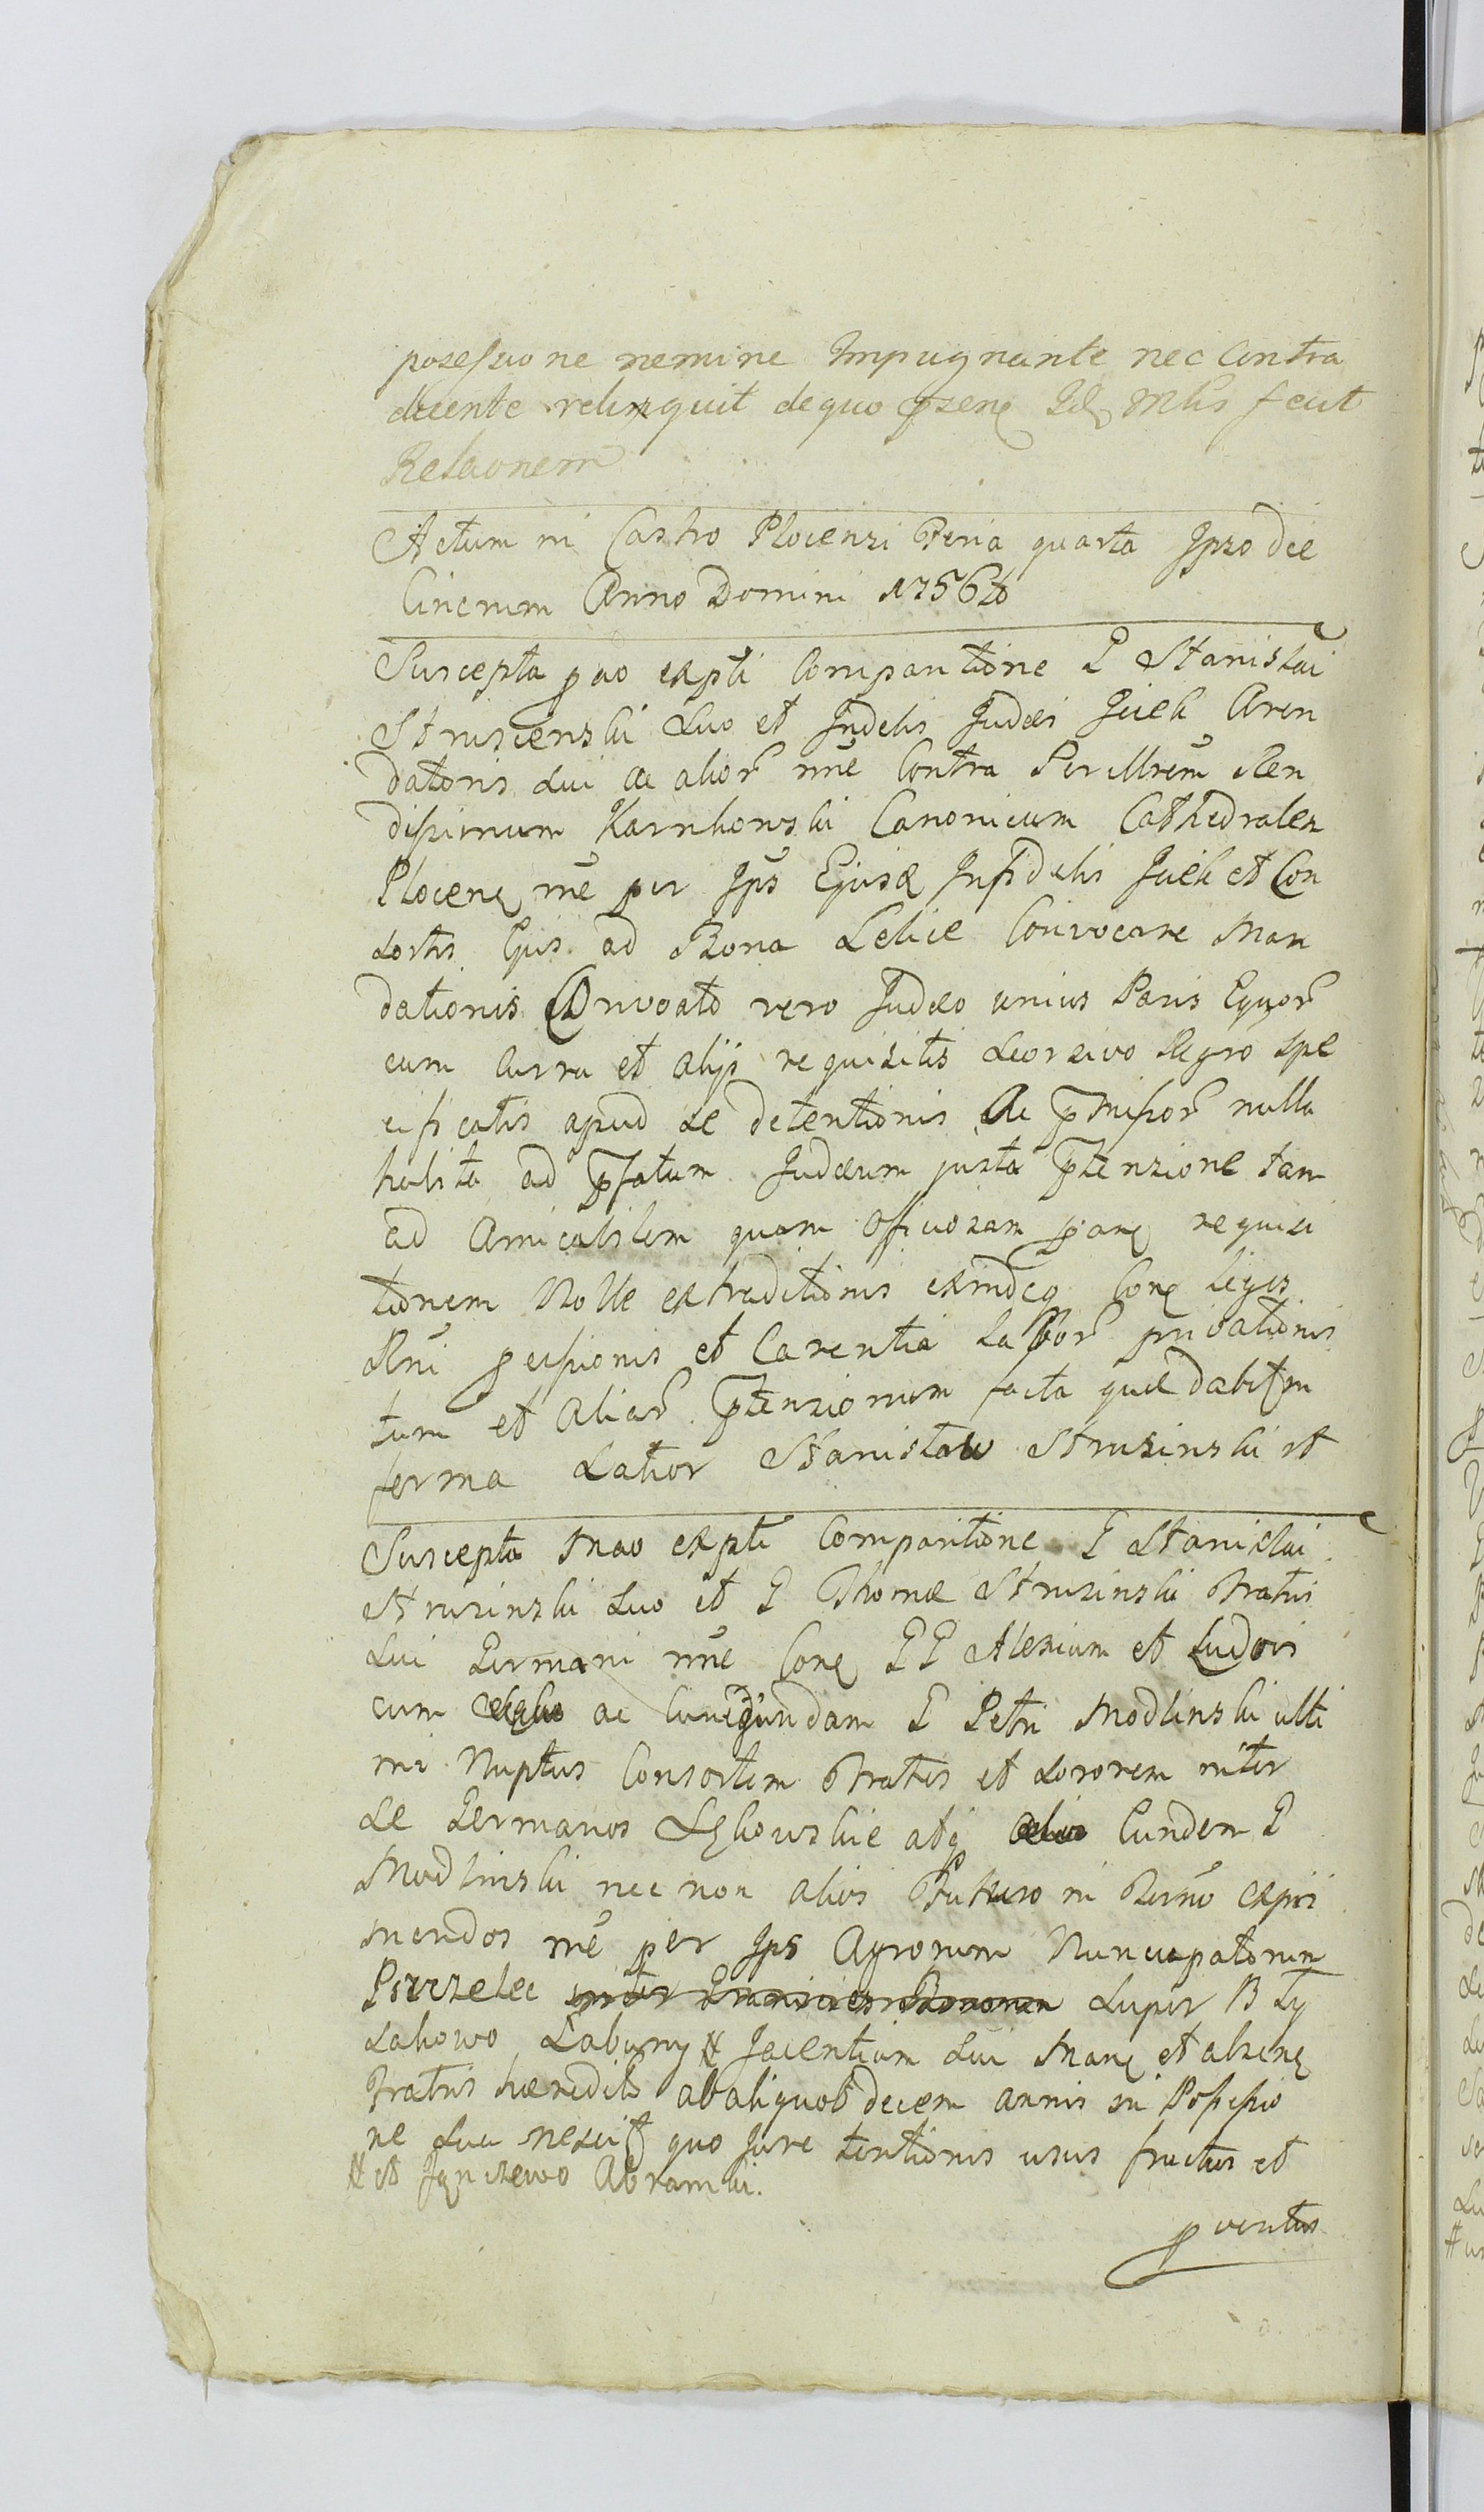 possessione nemine Impugnante nec Contra
dicente relinquit de quo pzens Id Mlis fecit
Relaonem
Actum in Castro Plocensi Feria quarta Ipso die
Cinerum Anno Domini 1756to
Suscepta pao expti Comparitione G Stanislai
Strusienski Suo et Indelis Judei Jciek Aren
datoris Sui ac alior nne Contra Perillrem Ren
dissimum Karnkowski Canonicum Cathedralem
Plocens nne per Ips Ejusd Infidelis Jciek et Con
sortis Ejus ad Bona Lelice Convocare Man
dationis Convoato vero Judæo unius Paris Equor
cum Curru et alijs requisitis seorsivo Regro spe
cificatis apud se detentionis Ac pmissor nulla
habita ad pfatum Judæum justa ptensione tam
ad Amicabilem quam officiosam pane requisi
tionem Nolle extraditionis exindeq Cone leges
Rni pcessionis et Carentia Labor privationis
tum et Aliar ptensionum facta quæ dabitr in
forma Lator Stanisław Strusinski rt
Suscepta Mao expti Comparitione G Stanislai
Strusinski Suo et G Thomæ Strusinski Fratris
Sui Germani nne Cone GG Alexium et Ludovi
cum ac Cunegundam G Petri Modlinski ulti
mi Nuptus Consortem Fratres et Sororem inter
se Germanos Lgkowskie atq Eundem G
Modlinski nec non alios Futuro in Termo expri
mendos nne per Ips Agrorum Nuncupatorum
Pierzelec super B Ly
sakowo Łabuny # Jacentium Sui Mane et absene
Fratris hæredits ab aliquot decem annis in Possessio
ne Sua nescitr quo Jure tentionis usus fructus et
# et Jgnczewo Abramki.
pventus